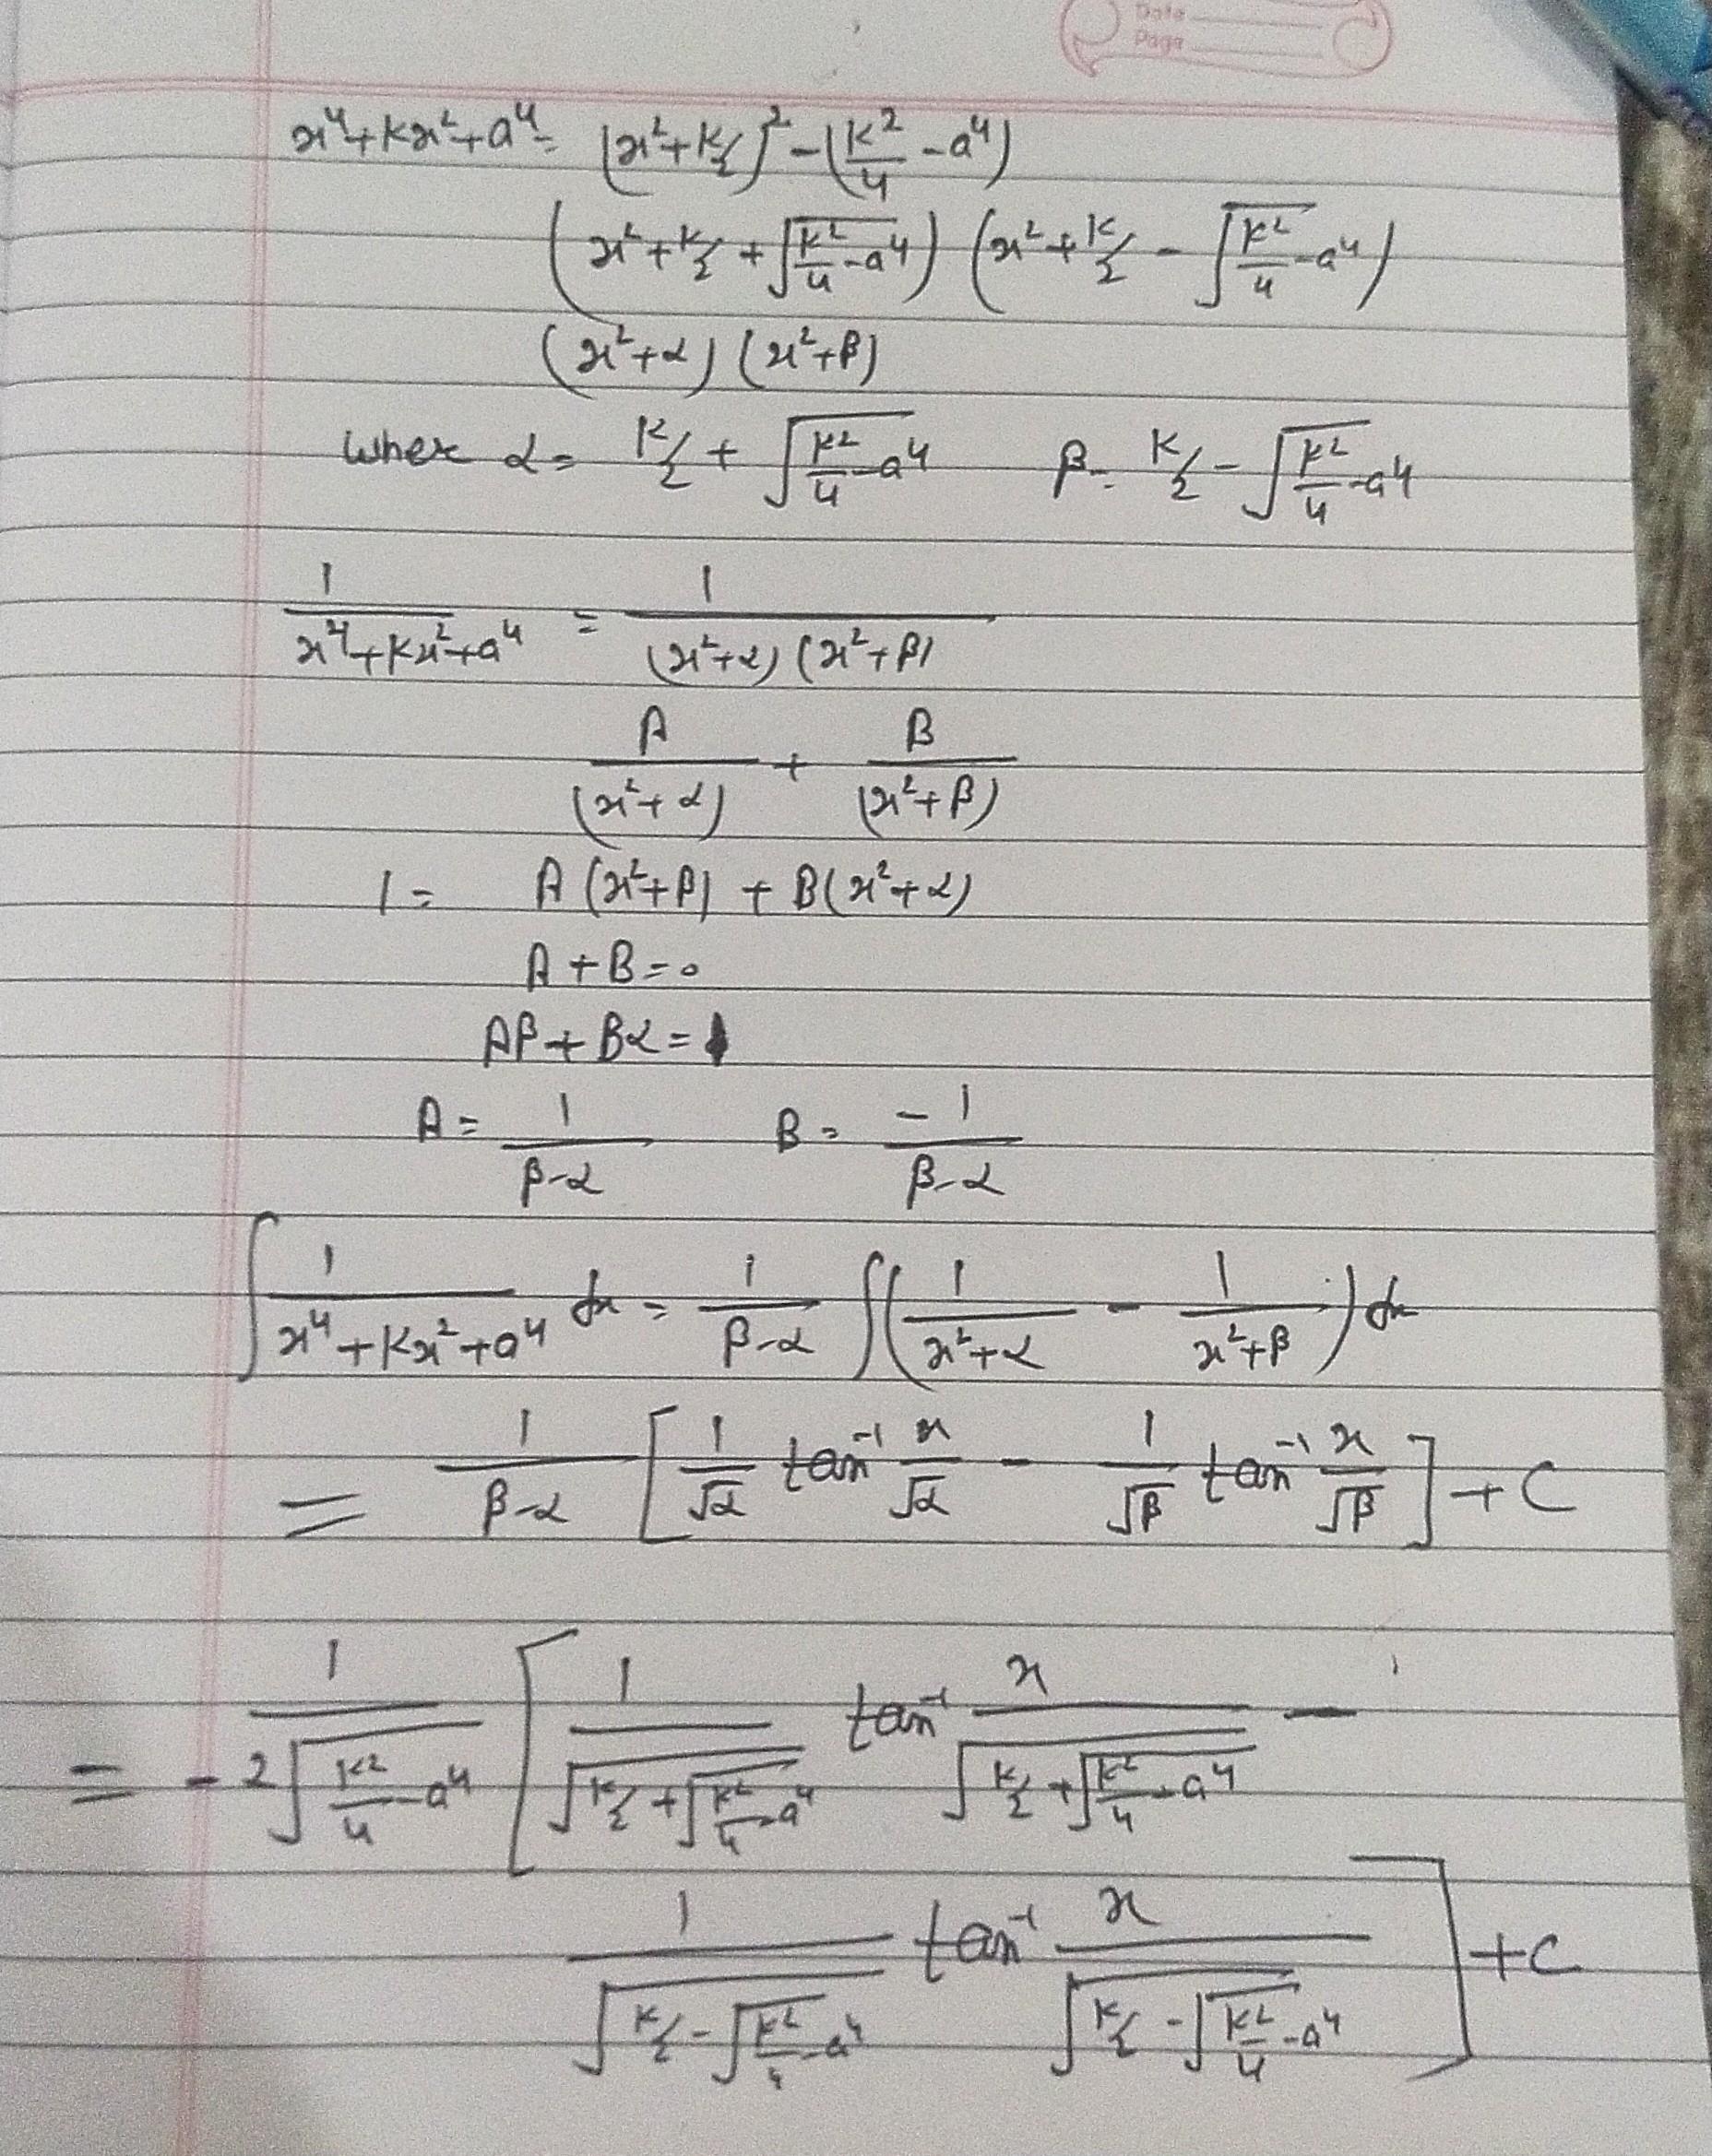 Date
Page
x⁴+kx²+a⁴= (x²+k/2)²-(k²/4-a⁴)
(x²+k/2+√(k²/4-a⁴)) (x²+k/2-√(k²/4-a⁴))
(x²+α) (x²+β)
where α= k/2+√(k²/4-a⁴) β= k/2-√(k²/4-a⁴)
1/(x⁴+kx²+a⁴) = 1/((x²+α)(x²+β))
A/(x²+α) + B/(x²+β)
1= A(x²+β) + B(x²+α)
A+B=0
Aβ+Bα=1
A= 1/(β-α) B= -1/(β-α)
∫1/(x⁴+kx²+a⁴) dx = 1/(β-α) ∫(1/(x²+α) - 1/(x²+β)) dx
= 1/(β-α) [1/√α tan⁻¹ x/√α - 1/√β tan⁻¹ x/√β] + C
= -1/(2√(k²/4-a⁴)) [1/√(k/2+√(k²/4-a⁴)) tan⁻¹ x/√(k/2+√(k²/4-a⁴)) -
1/√(k/2-√(k²/4-a⁴)) tan⁻¹ x/√(k/2-√(k²/4-a⁴))] + C